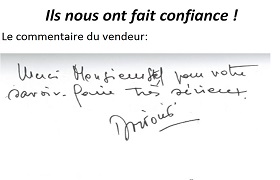 Ils nous ont fait confiance !
Le commentaire du vendeur:
Merci Monsieur pour votre
savoir-faire très sérieux.